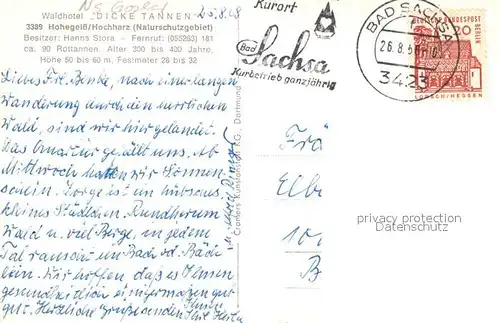 Waldhotel „DICKE TANNEN"
25.8.68
3389 Hohegeiß/Hochharz (Naturschutzgebiet)
Besitzer: Hanns Stora - Fernruf: (055263) 181
ca. 90 Rottannen. Alter 300 bis 400 Jahre,
Höhe 50 bis 60 m, Festmeter 26 bis 32
Liebes Frl. Benke, nach einer langen
Wanderung durch den herrlichen
Wald, sind wir hier gelandet.
Das Quartier gefällt uns. Ab
Mittwoch hatten wir Sonnen-
schein. Zorge ist ein hübsches,
kleines Städtchen. Rundherum
Wald u. viel Berge, in jedem
Tal ransch ein Bach od. Bäch
lein. Wir hoffen, daß es Ihnen
gesundheitlich einigermaßen gut
geht. Herzliche Grüße senden Ihnen
Ihre
Cramers Kunstanstalt KG, Dortmund
Kurort
Bad Sachsa
Kurbetrieb ganzjährig
BAD SACHSA
26.8.68
3423
DEUTSCHE BUNDESPOST
BERLIN
20
LORSCH/HESSEN
Frä
Elbe
B
privacy protected
Datenschutz